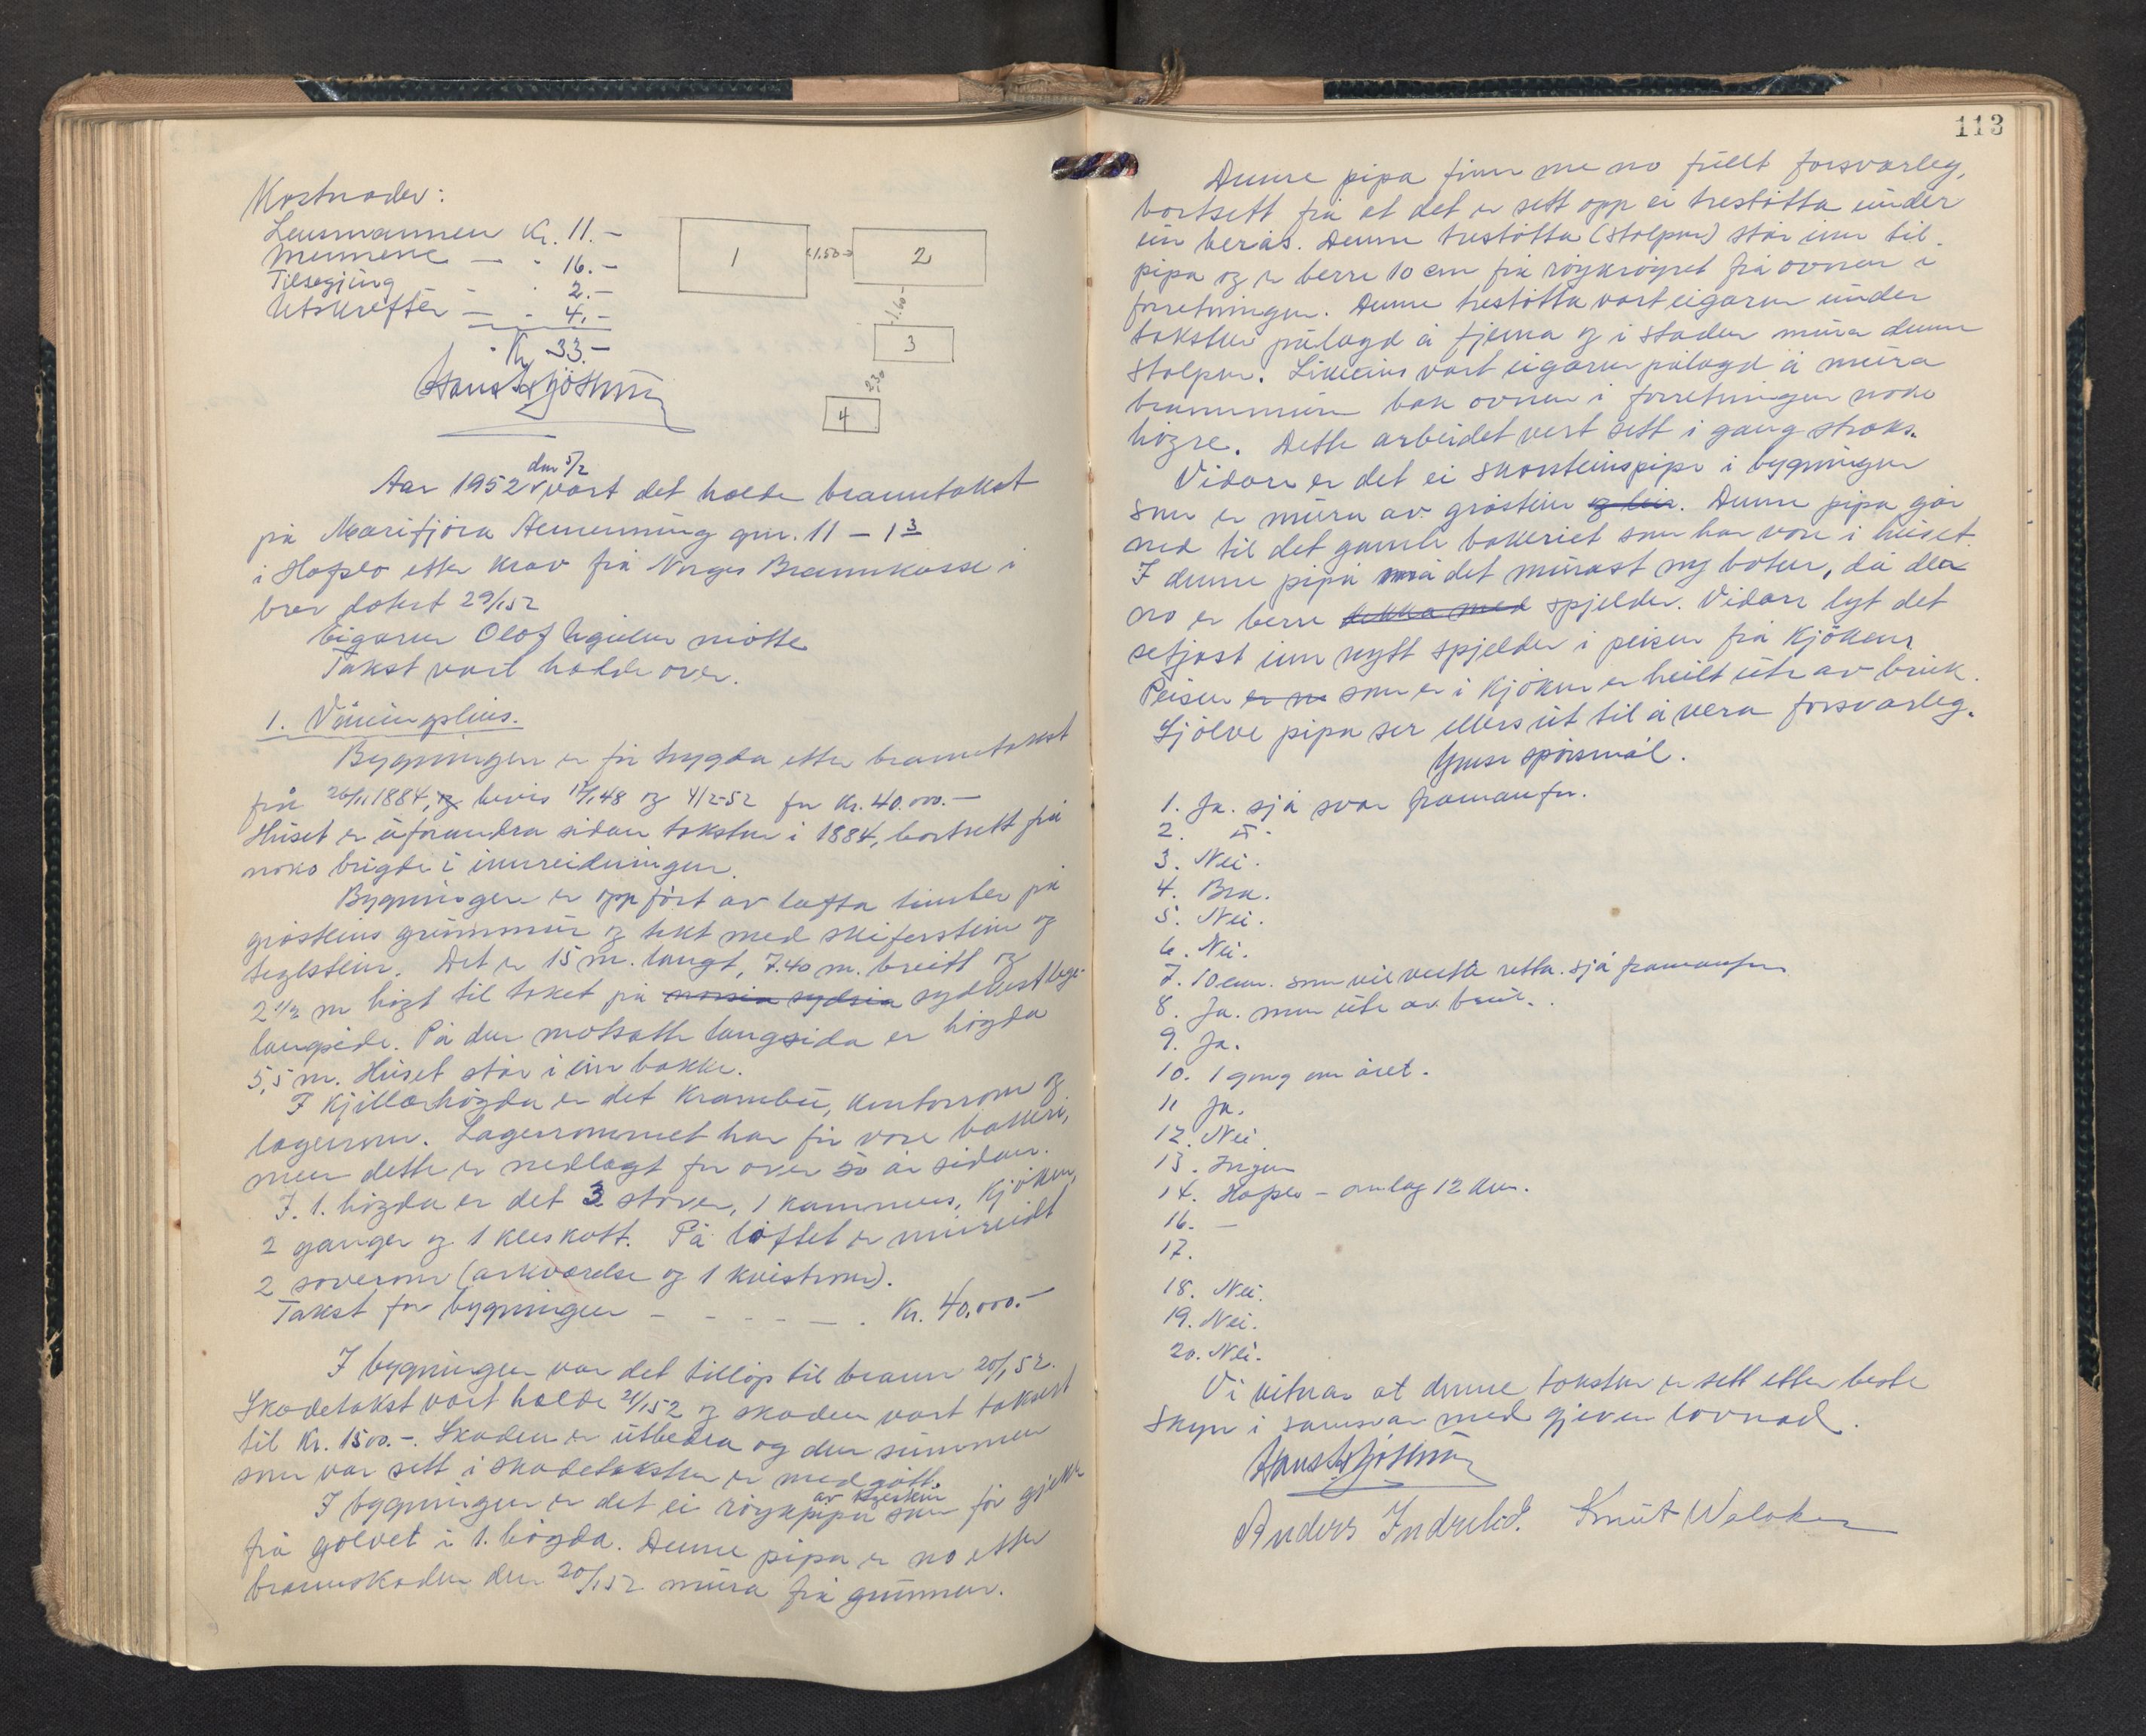 Kostnader:
Lensmannen Kr. 11.-
Mennene — " 16.-
Tilsegjing - " 2.-
Utskrifter — " 4.-
Kr. 33.-
1
<1.50>
2
1.60
3
2.30
4
Aar 1952 den 5/2 vart det halde branntakst
på Marifjøra Hemenning gnr. 11 – 1³
i Hafslo etter krav frå Norges Brannkasse i
brev datert 29/1 52
Eigaren Olaf møtte
Takst vart halde over.
1. Våningshus.
Bygningen er før trygda etter branntakst
frå 26/11 1884, og bevis 17/1 48 og 4/2-52 for Kr. 40.000.-
Huset er uforandra sidan taksten i 1884, bortsett frå
noko brigde i innreidningen.
Bygningen er oppført av lafta timber på
gråsteins grunnmur og tekt med skiferstein og
teglstein. Det er 15 m. langt, 7.40 m. breitt og
2 1/2 m høgt til taket på norsia sydsia sydvestlege
langside. På den motsatte langsida er høgda
5,5 m. Huset står i ein bakke.
I kjellarhøgda er det krambu, kontorrom og
lagerrom. Lagerrommet har før vore bakeri,
men dette er nedlagt for over 50 år sidan.
I. 1. høgda er det 3 stover, 1 kammers, kjøken,
2 ganger og 1 kleskott. På loftet er innreidt
2 soverom (arkværelse og 1 kvistrom).
Takst for bygningen - - - - - . Kr. 40.000.-
I bygningen var det tilløp til brann 20/1 52.
Skadetakst vart halde 21/1 52 og skaden vart taksert
til Kr. 1500.-. Skaden er utbedra og den summen
som var sett i skadetaksten er medgått.
I bygningen er det ei røykpipa av teglstein som før gjekk
frå golvet i 1. høgda. Denne pipa er no etter
brannskaden den 20/1 52 mura frå grunnen.
113
Denne pipa finn me no fullt forsvarleg,
bortsett frå at det er sett opp ei trestøtta under
ein berås. Denne trestøtta (stolpen) står inn til
pipa og er berre 10 cm frå røykrøyret frå ovnen i
forretningen. Denne trestøtta vart eigaren under
taksten pålagd å fjerna og i staden mura denne
stolpen. Likeeins vart eigaren pålagd å mura
brannmuren bak ovnen i forretningen noko
høgre. Dette arbeidet vert sett i gang straks.
Vidare er det ei skorsteinspipe i bygningen
som er mura av gråstein og leir. Denne pipa går
ned til det gamle bakeriet som har vore i huset.
I denne pipa må det murast ny botn, då den
no er berre tekka med spjelder. Vidare lyt det
setjast inn nytt spjelder i peisen frå kjøkenet.
Peisen er no som er i kjøken er heilt ute av bruk.
Sjølve pipa ser ellers ut til å vera forsvarleg.
Ymse spørsmål.
1. Ja. sjå svar framanfor.
2. "
3. Nei.
4. Bra.
5. Nei.
6. Nei.
7. 10 cm. som vil verta retta. sjå framanfor
8. Ja. men ute av bruk.
9. Ja.
10. 1 gong om året.
11 Ja.
12. Nei
13. Ingen
14. Hafslo – omlag 12 km.
16. —
17.
18. Nei.
19. Nei.
20. Nei.
Vi vitnar at denne taksten er sett etter beste
skyn i samsvar med gjeven lovnad.
Anders Indrebø. Knut Walaker